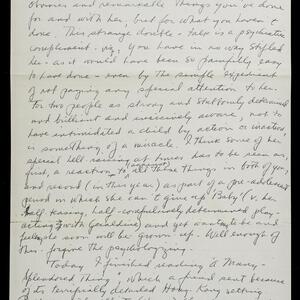 obvious and remarkable things you've done
for and with her, but for what you haven't
done. This strange double-talk is a psychiatric
compliment - viz, you have in no way stifled
her - as it would have been so painfully easy
to have done - even by the simple expedient
of not paying any special attention to her.
For two people as strong and stubbornly determined
and brilliant and incisively aware, not to
have intimidated a child by action or inaction,
is something of a miracle. I think some of her
special hell raising at times has to be seen as,
first, a reaction to all those things in both of you,
and second (in this year) as part of a pre-adolescent
period in which she can't give up "Baby" (v. her
half teasing, half-completely determined play-
acting with Geraldine) and yet wants to and
feels she soon will be grown-up. Well enough of
this. Forgive the psychologizing.
Today I finished reading "A Many-
Splendored Thing" which a friend sent because
of its terrifically detailed Hong Kong setting